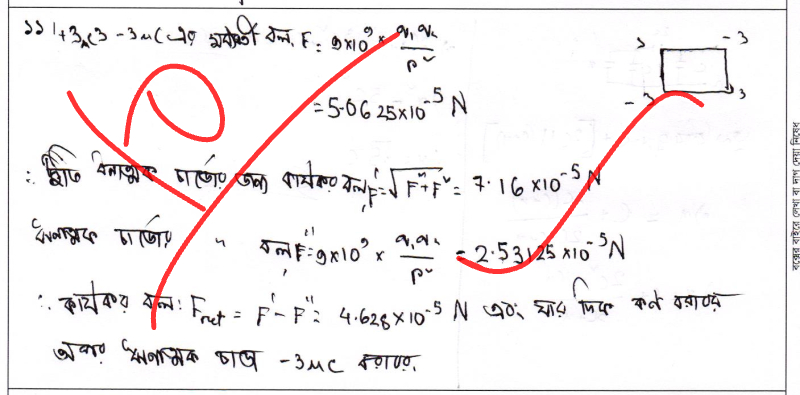 ১১। +3μC ও -3μC এর মধ্যবর্তী বল, F = 9×10⁹ × q₁q₂/r²
= 5.0625×10⁻⁵ N
3 -3
-3 3
∴ দুইটি ঋনাত্মক চার্জের জন্য কার্যকর বল, F' = √F²+F² = 7.16×10⁻⁵ N
ঋনাত্মক চার্জের " বল, F'' = 9×10⁹ × q₁q₂/r² = 2.53125×10⁻⁵ N
∴ কার্যকর বল: Fnet = F' - F'' = 4.628×10⁻⁵ N এবং যার দিক কর্ণ বরাবর
অপর ঋনাত্মক চার্জ -3μC বরাবর।
বক্সের বাইরে লেখা বা দাগ দেয়া নিষেধ